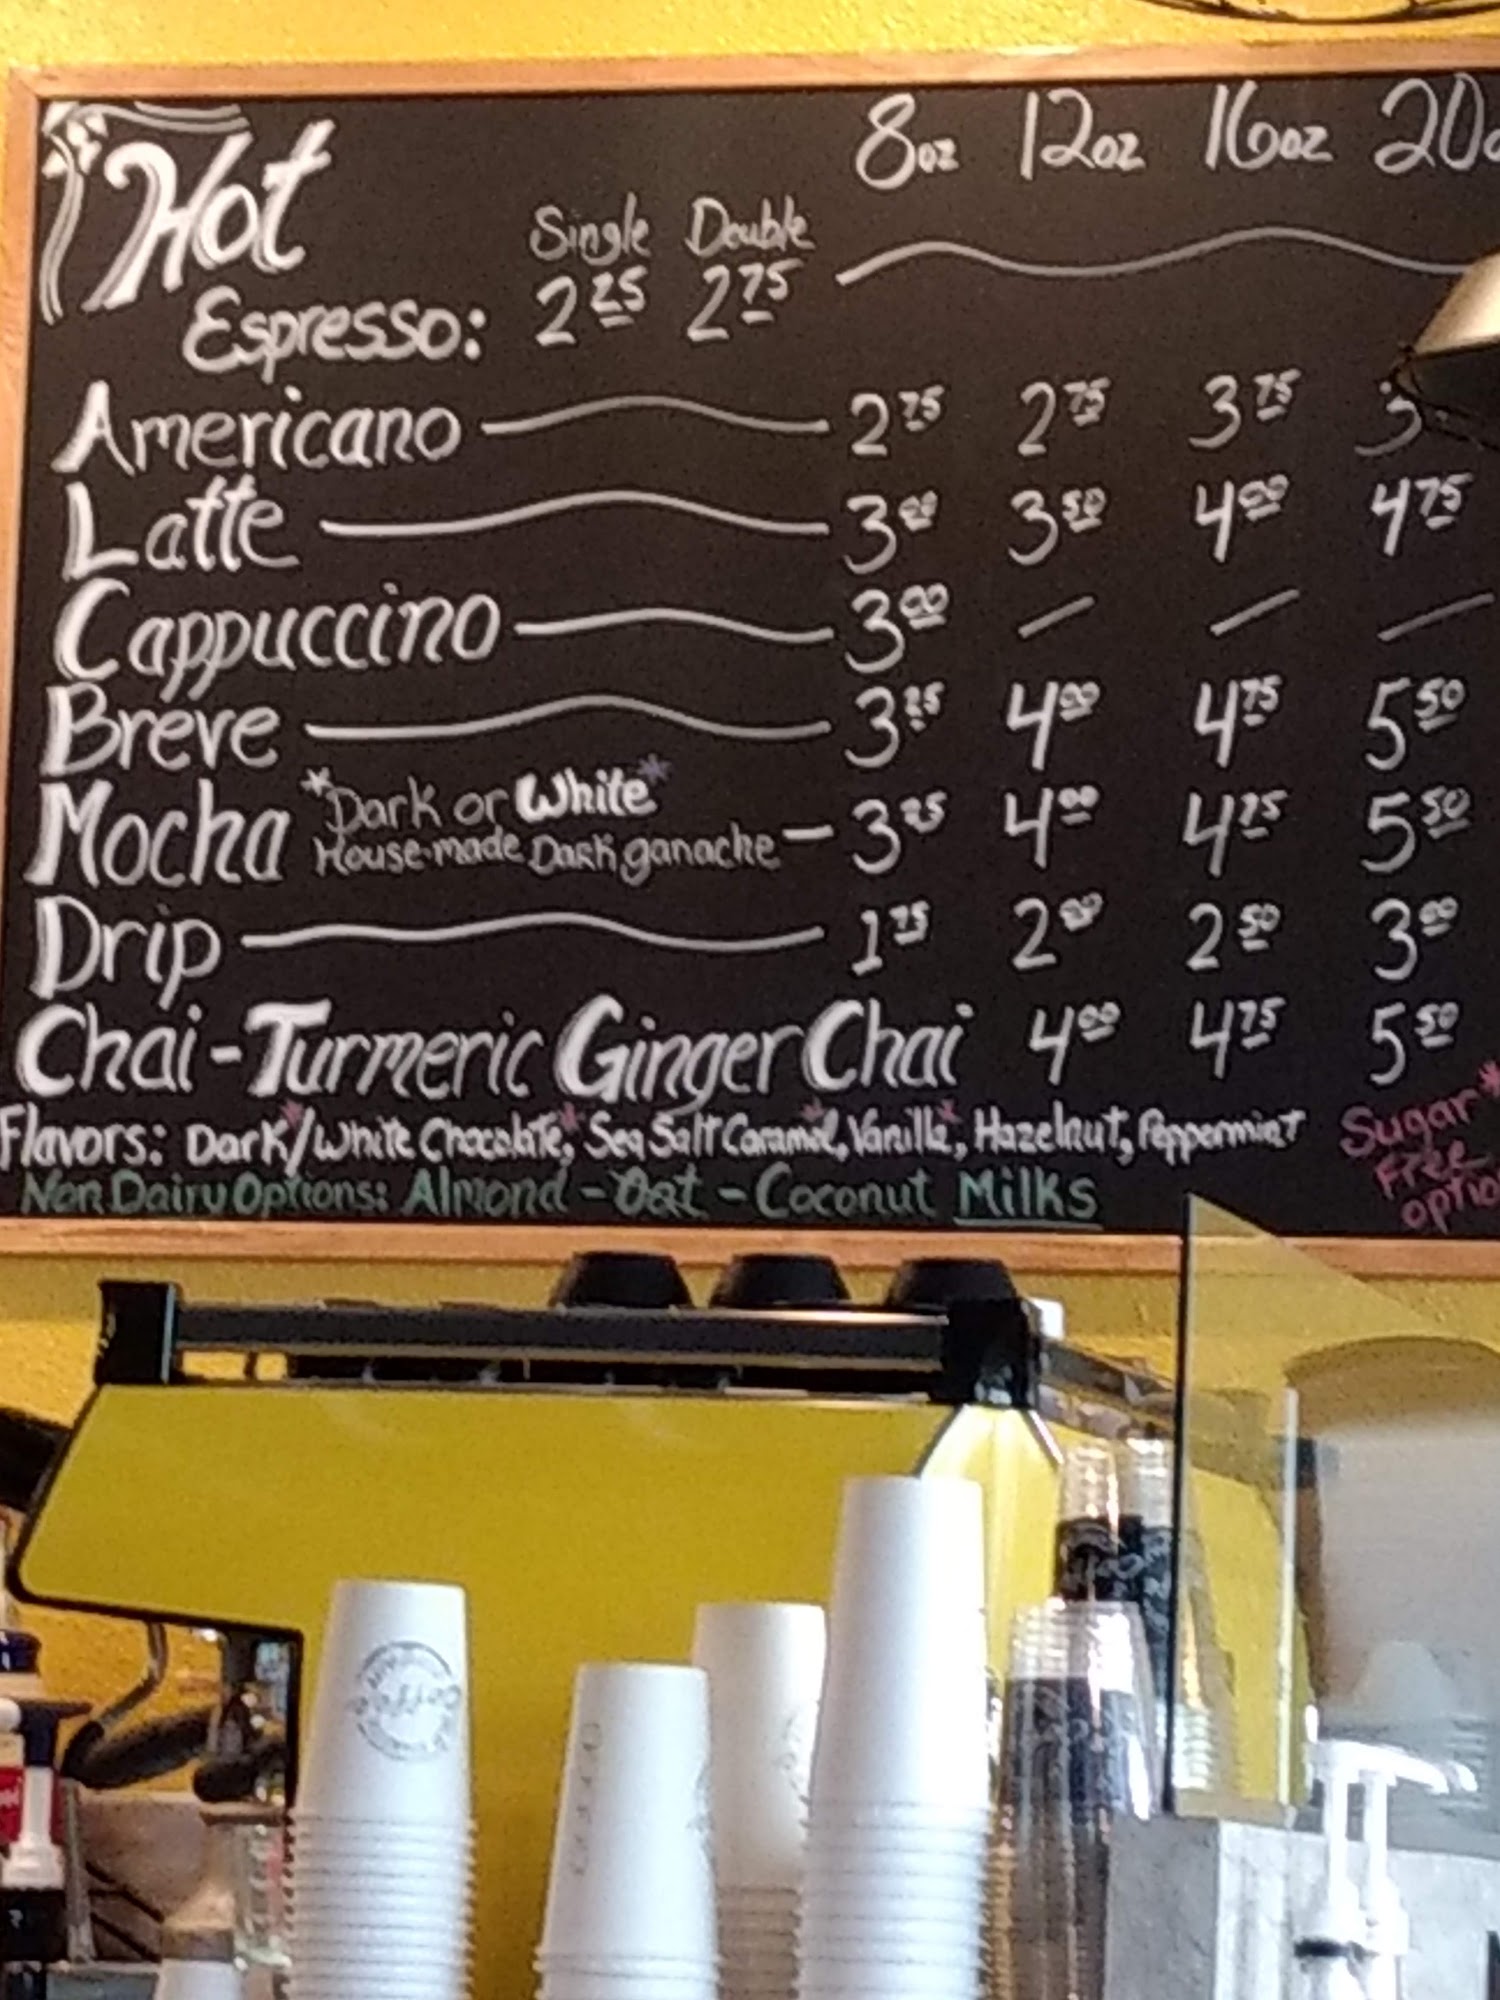 Hot 8oz 12oz 16oz 20
Single Double
Espresso: 2 25 2 75
Americano 2 75 2 75 3 75 3
Latte 3 00 3 50 4 00 4 75
Cappuccino 3 00 / / /
Breve 3 25 4 00 4 75 5 50
Mocha *Dark or White* 3 25 4 00 4 75 5 50
House-made Dark ganache
Drip 1 75 2 00 2 50 3 00
Chai - Turmeric Ginger Chai 4 00 4 75 5 50
Flavors: Dark*/White Chocolate*, Sea Salt Caramel*, Vanilla*, Hazelnut, Peppermint
Sugar*
Free
optio
Non Dairy Options: Almond - Oat - Coconut Milks